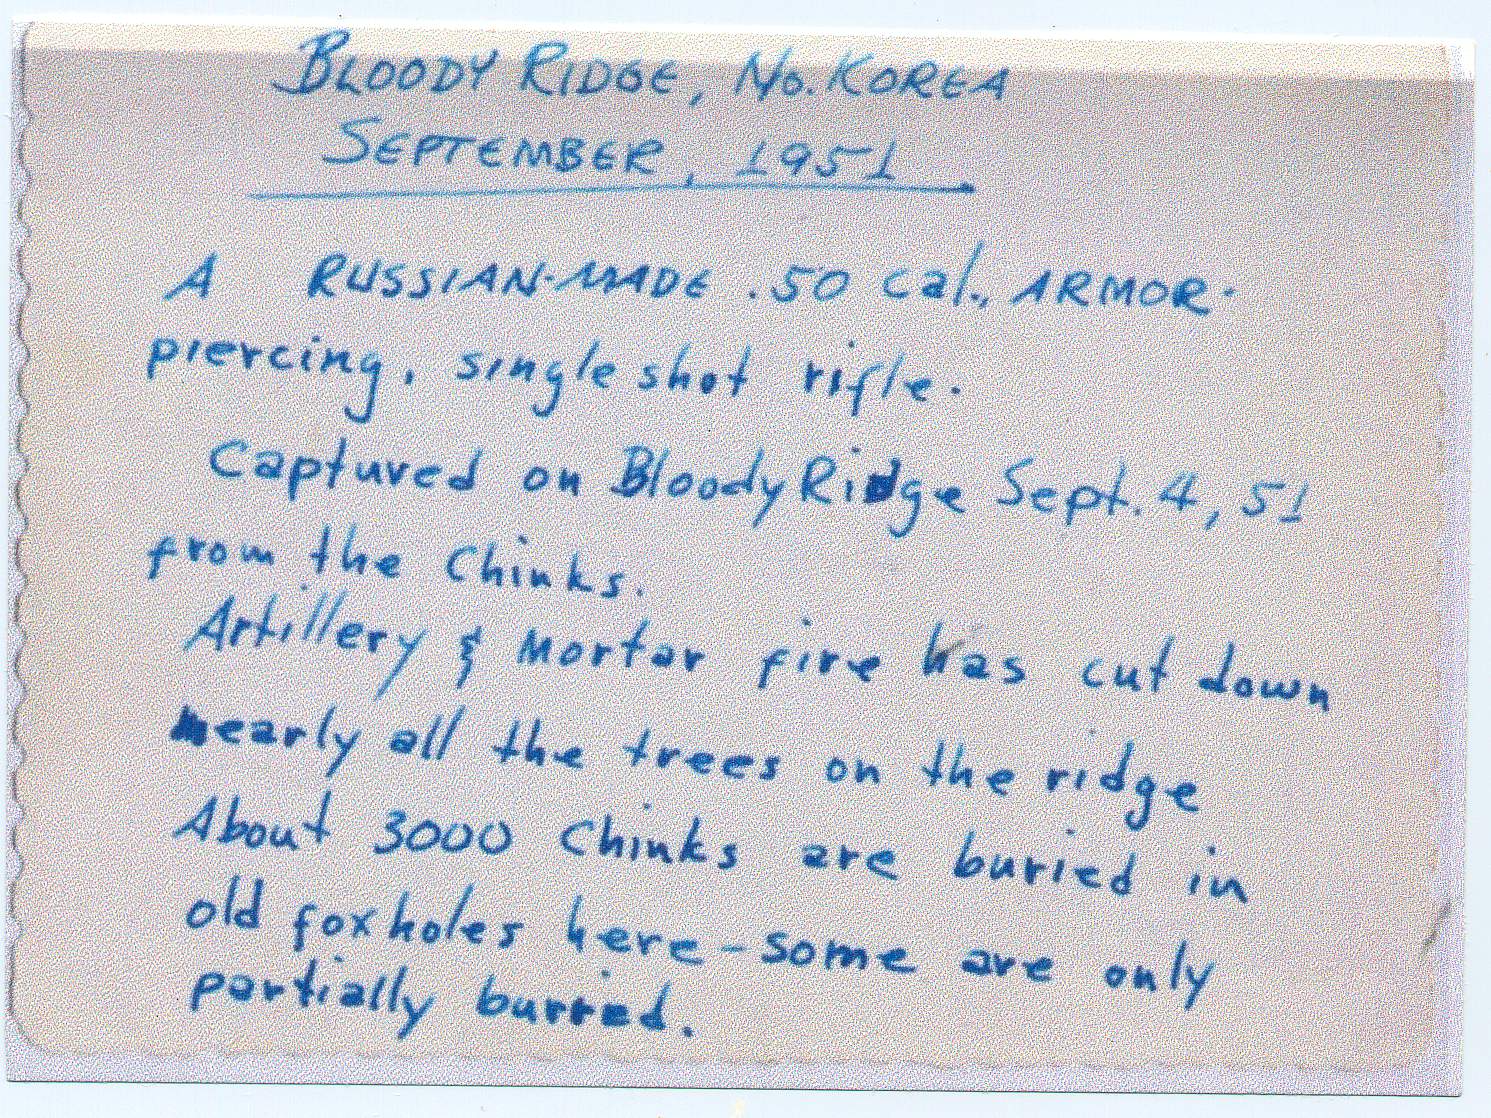 BLOODY RIDGE, No. KOREA
SEPTEMBER, 1951
A RUSSIAN-MADE .50 cal., ARMOR-
piercing, single shot rifle.
Captured on Bloody Ridge Sept. 4, 51
from the Chinks.
Artillery & Mortar fire has cut down
nearly all the trees on the ridge
About 3000 Chinks are buried in
old foxholes here - some are only
partially buried.